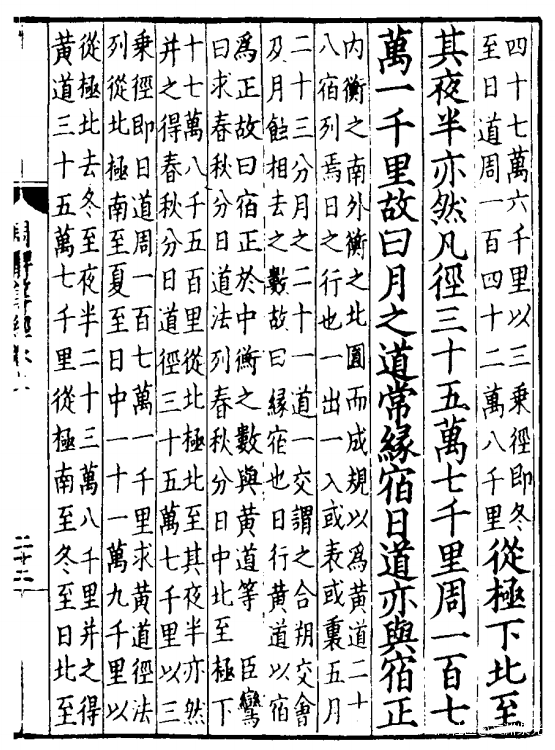 四十七萬六千里以三乗徑即冬
至日道周一百四十二萬八千里
從極下北至
其夜半亦然凡徑三十五萬七千里周一百七
萬一千里故曰月之道常縁宿日道亦與宿正
内衡之南外衡之北圓而成規以為黄道二十
八宿列焉日之行也一出一入或表或裏五月
二十三分月之二十一道一交謂之合朔交會
及月蝕相去之數故曰縁宿也日行黄道以宿
為正故曰宿正於中衡之數與黄道等　臣鸞
曰求春秋分日道法列春秋分日中北至極下
十七萬八千五百里從北極北至其夜半亦然
并之得春秋分日道徑三十五萬七千里以三
乗徑即日道周一百七萬一千里求黄道徑法
列從北極南至夏至日中一十一萬九千里以
從極北去冬至夜半二十三萬八千里并之得
黄道三十五萬七千里從極南至冬至日北至
二十二